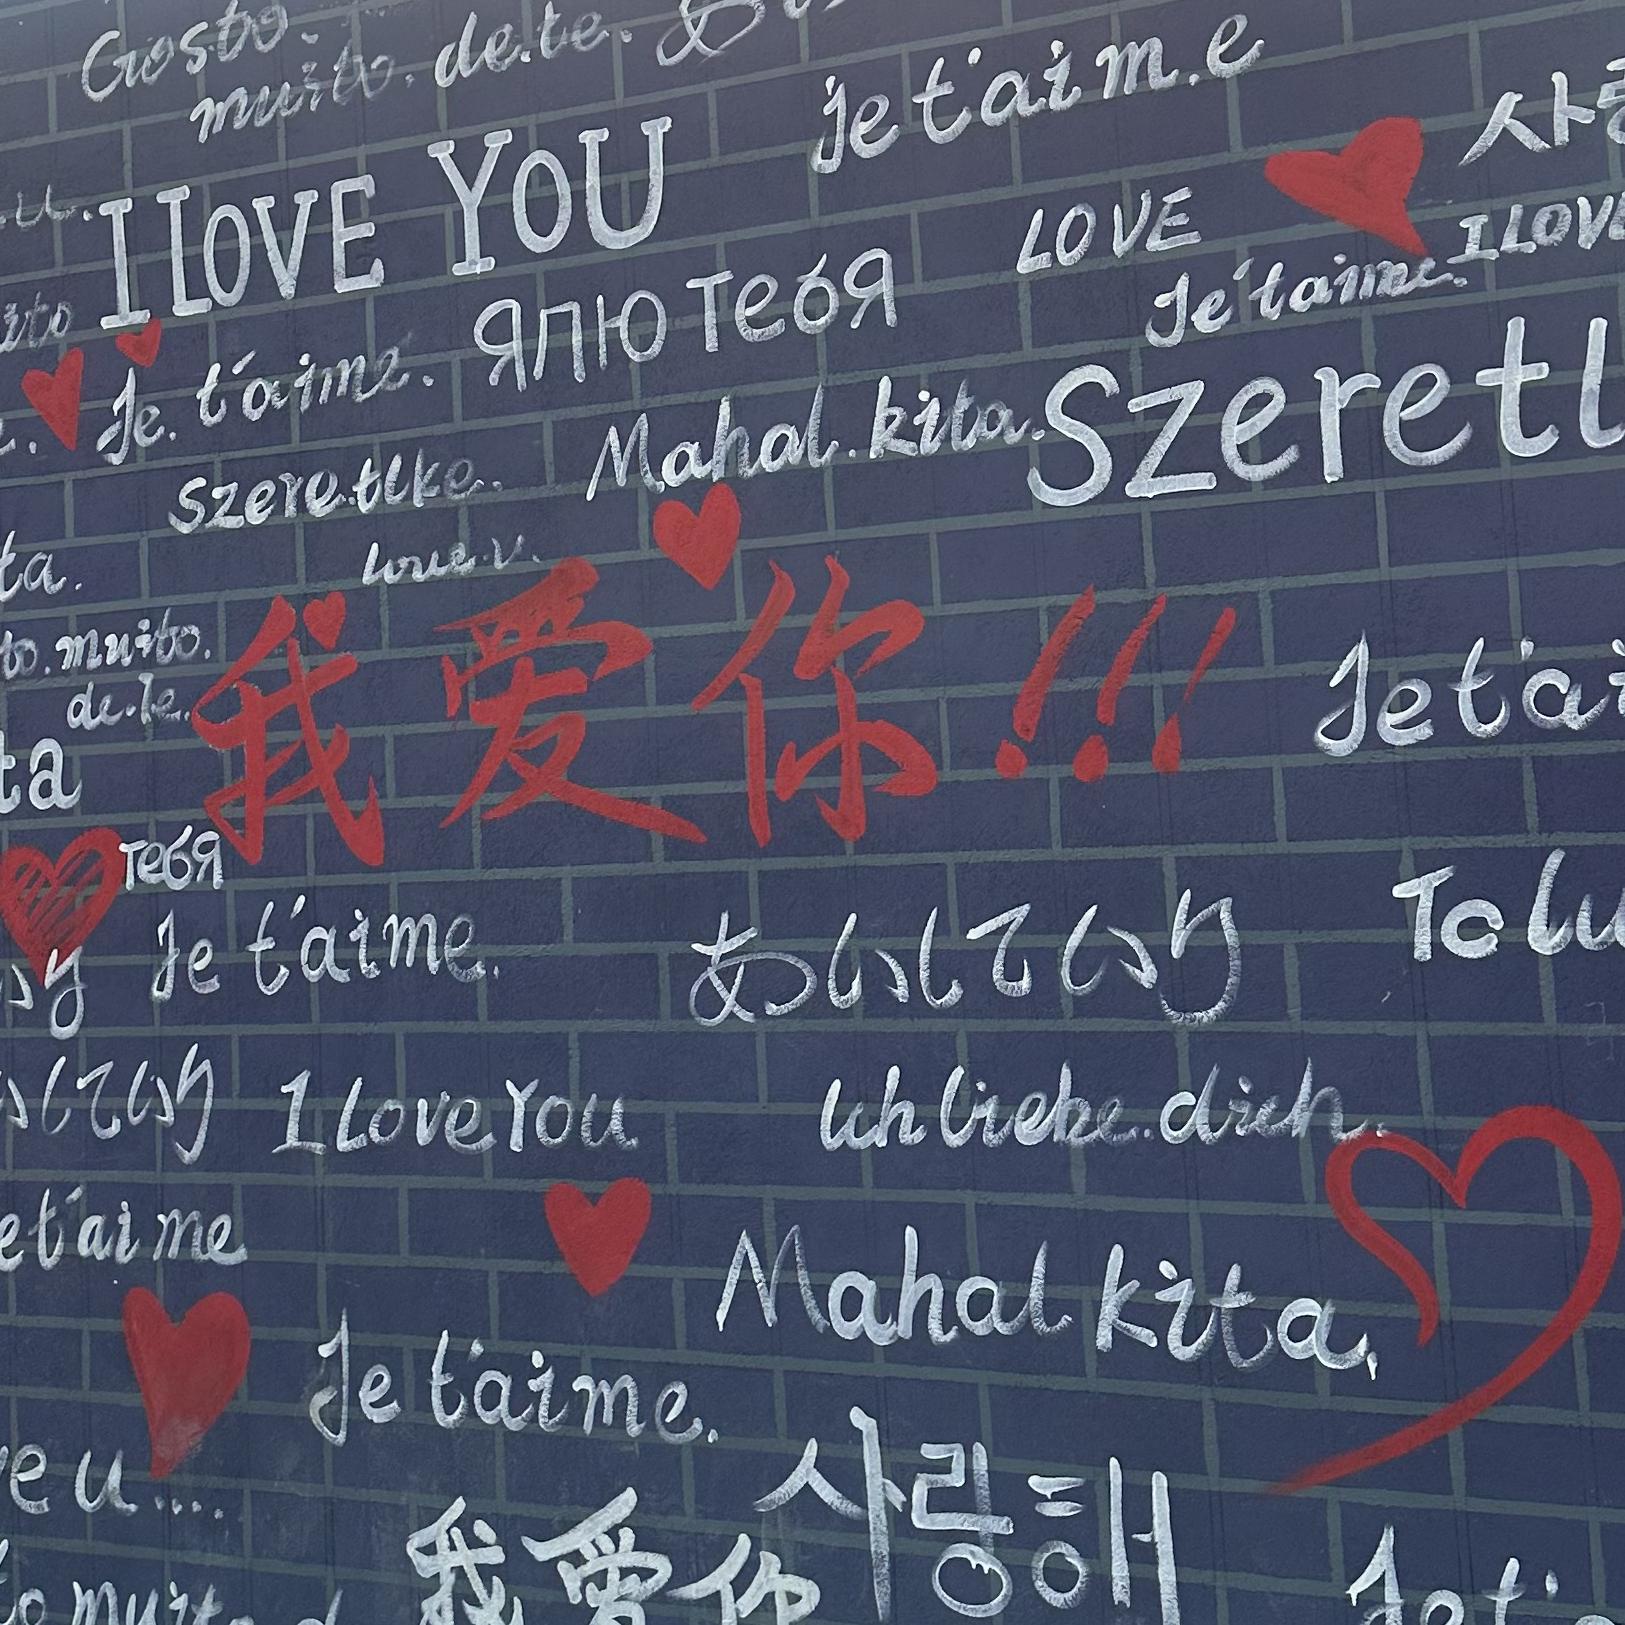 Gosto.
muito. de.te. あ
je t'aim.e
사랑
I LOVE YOU
LOVE
I LOVE
Je t'aime.
ЯЛЮ тебя
Je. t'aime.
Mahal.kita.
Szeretl
Szere.tlke.
love.v.
ta.
to.muito.
de.le.
我爱你!!!
Je t'ai
ta
тебя
Je t'aime.
あいしていり
To lu
いしていり
I Love You
Ich liebe.dich.
et'aime
Mahal kita,
Je t'aime.
ve u....
사랑해
我爱你
Je t'a
to muito d